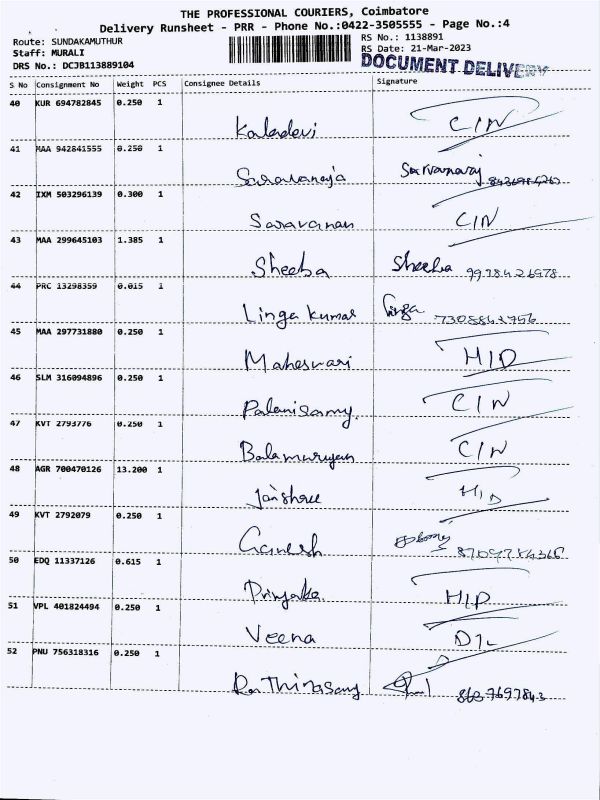 THE PROFESSIONAL COURIERS, Coimbatore
Delivery Runsheet - PRR - Phone No.:0422-3505555 - Page No.:4
Route: SUNDAKAMUTHUR
Staff: MURALI
DRS No.: DCJB113889104
RS No.: 1138891
RS Date: 21-Mar-2023
DOCUMENT DELIVERY
S No Consignment No Weight PCS Consignee Details Signature
40 KUR 694782845 0.250 1
Kaladevi CIN
41 MAA 942841555 0.250 1
Saravanaja Sarvanaraj
42 IXM 503296139 0.300 1
Saravanan CIN
43 MAA 299645103 1.385 1
Sheeba Sheeba 9978426978
44 PRC 13298359 0.015 1
Linga kumar Linga 7308842756
45 MAA 297731880 0.250 1
Maheswari HID
46 SLM 316094896 0.250 1
Palanisamy. CIN
47 KVT 2793776 0.250 1
Balamurugan CIN
48 AGR 700470126 13.200 1
Jaishree HID
49 KVT 2792079 0.250 1
Ganesh
50 EDQ 11337126 0.615 1
Priyaka HID
51 VPL 401824494 0.250 1
Veena D1L
52 PNU 756318316 0.250 1
Rathinasamy